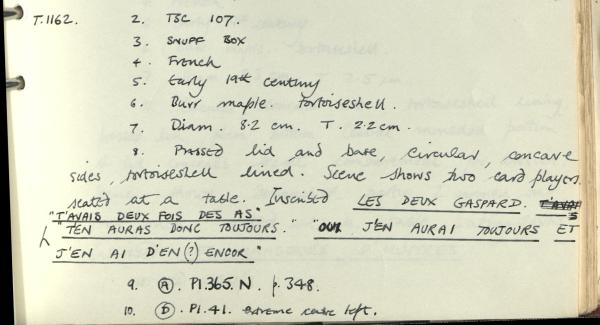 T.1162.
2. TSC 107.
3. SNUFF BOX
4. French
5. Early 19th century
6. Burr maple. tortoiseshell.
7. Diam. 8.2 cm. T. 2.2 cm.
8. Pressed lid and base, circular, concave
sides, tortoiseshell lined. Scene shows two card players
seated at a table. Inscribed LES DEUX GASPARD.
"J'AVAIS DEUX FOIS DES AS"
"T'EN AURAS DONC TOUJOURS. J'EN AURAI TOUJOURS ET
J'EN AI D'EN(?) ENCOR"
9. A. Pl.365.N. p.348.
10. D. Pl.41. extreme centre left.